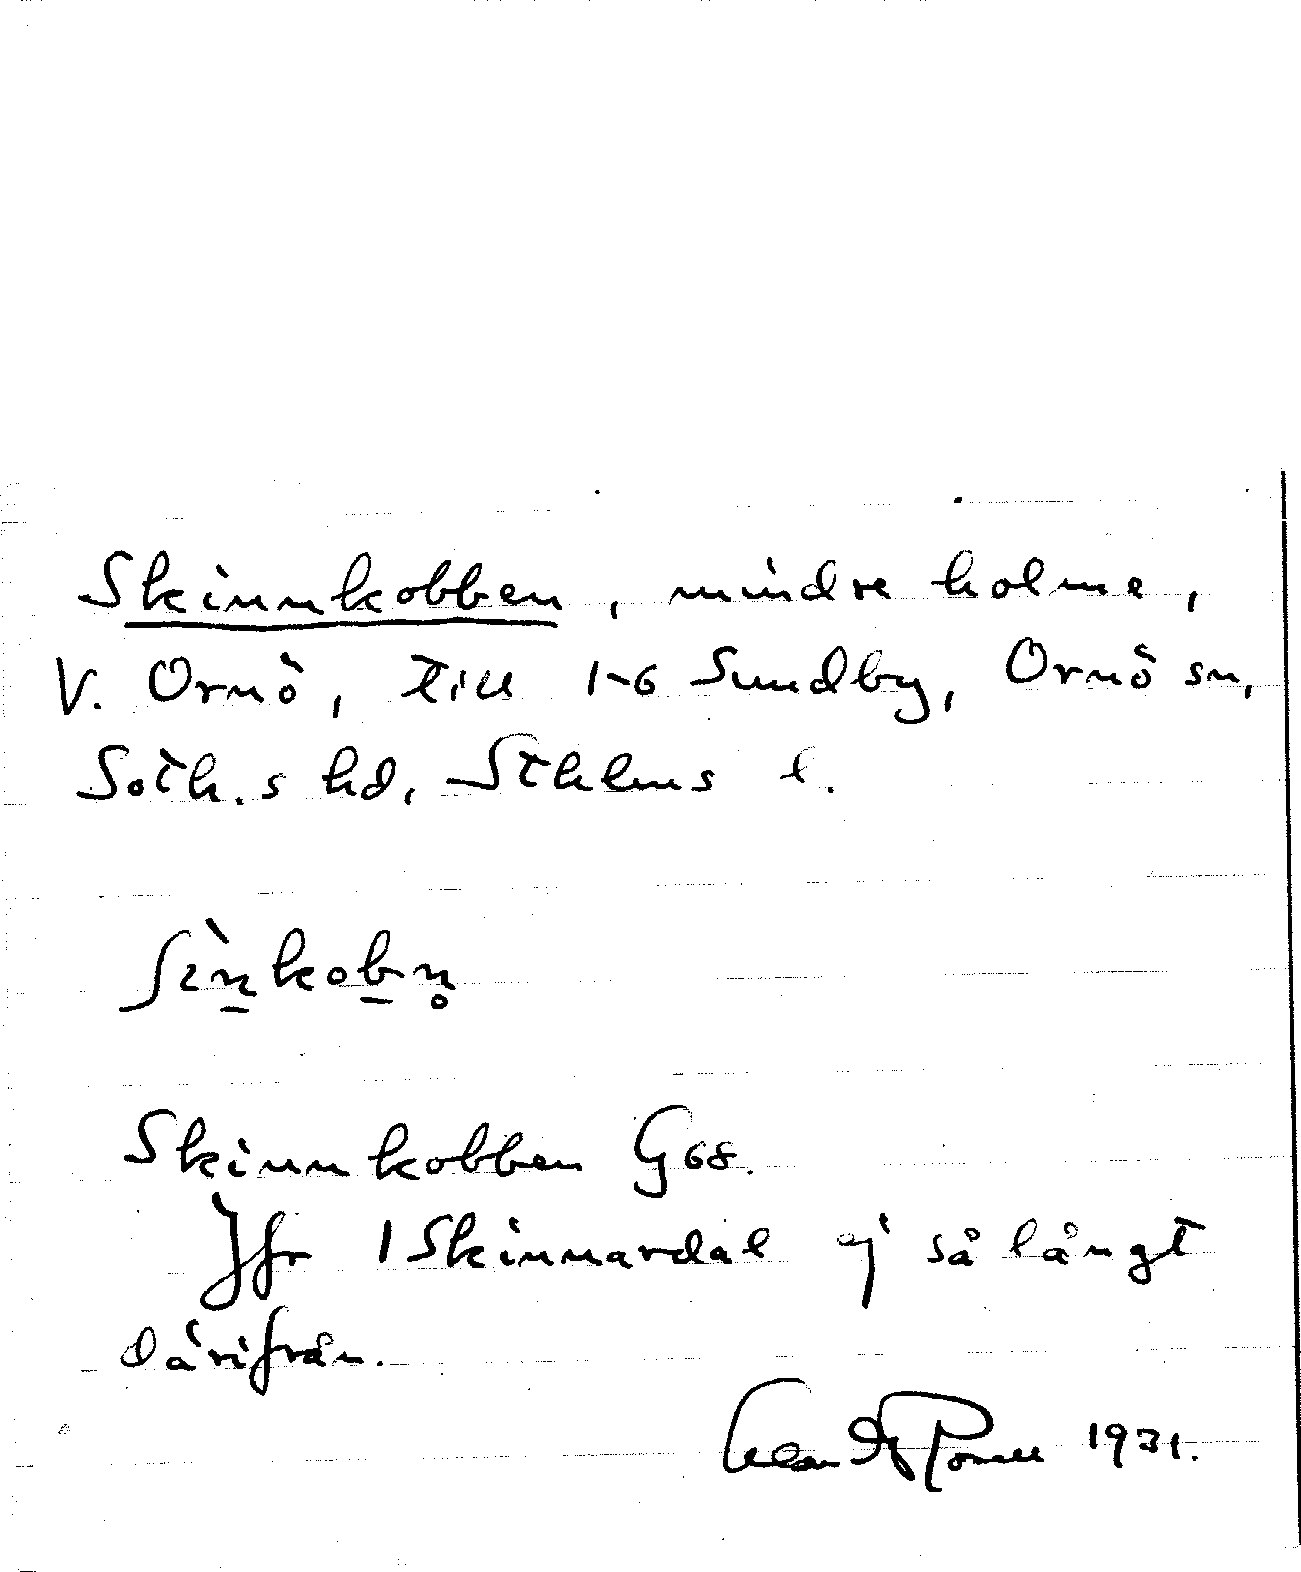 Skinnkobben, mindre holme,
V. Ornö, till 1-6 Sundby, Ornö sn,
Soth.s hd, Sthlms l.
ʃìn̲kob̲n̥
Skinnkobben G68.
Jfr 1 Skinnardal ej så långt
därifrån.
1931.